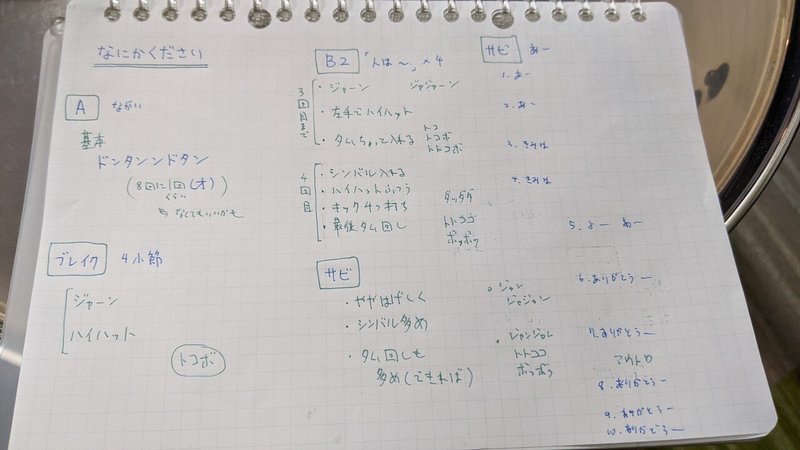 なにかください
A ながい
基本
ドンタンンドタン
(8回に1回(オ))
ぐらい
なくてもいいかも
ブレイク 4小節
ジャーン
ハイハット
トコボ
B2 「人は〜」×4
3回目まで
・ジャーン ジャジャーン
・左手でハイハット
・タムちょっと入れる
トコ
トコボ
トトコボ
4回目
・シンバル入れる
・ハイハットふつう
・キック4つ打ち
・最後タム回し
ダッダダ
トトココ
ボッボッ
サビ
・ややはげしく
・シンバル多め
・タム回しも
多め(できれば)
ジャン
ジャジャン
ジャンジャン
トトココ
ボッボッ
サビ あー
1. あー
2. あー
3. きみは
4. きみは
5. よー あー
6. ありがとうー
7. ありがとうー
アウトロ
8. ありがとうー
9. ありがとうー
10. ありがとうー